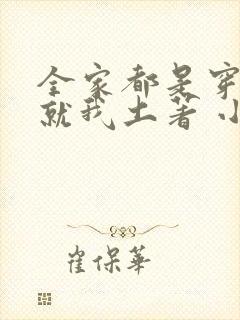 全家都是穿
就我土著小
崔保华